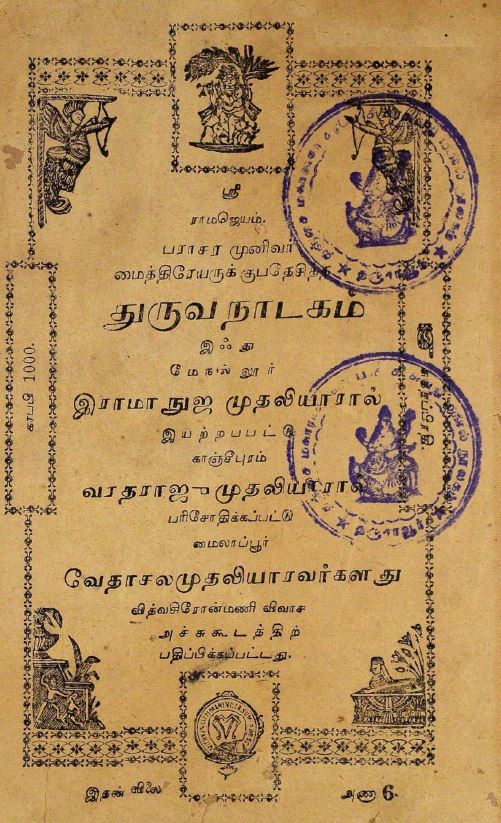 ஸ்ரீ
ராமஜெயம்.
பராசர முனிவர்
மைத்திரேயருக் குபதேசித்த
துருவ நாடகம்
இஃது
மேநல்லூர்
இராமாநுஜ முதலியாரால்
இயற்றப்பட்டு
காஞ்சீபுரம்
வரதராஜு முதலியாரால்
பரிசோதிக்கப்பட்டு
மைலாப்பூர்
வேதாசலமுதலியாரவர்களது
வித்வசிரோன்மணி விலாச
அச்சுகூடத்திற்
பதிப்பிக்கப்பட்டது.
காபபி 1000.
இதன் விலை
அணா 6.